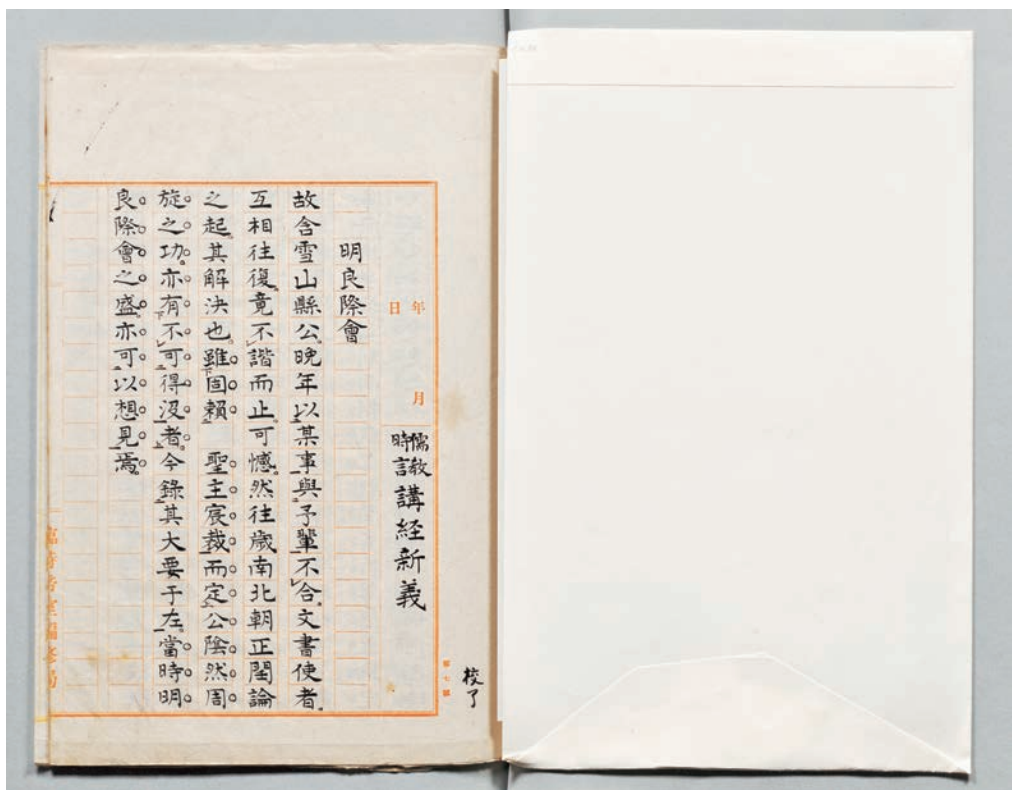 校了
第七號
年 月 日
儒教時言 講経新義
明良際會
故含雪山縣公。晩年以某事與予輩不合。文書使者。
互相往復。竟不諧而止。可憾。然往歳南北朝正閏論
之起。其解決也。雖固頼 聖主宸裁而定。公陰然周
旋之功。亦有不可得没者。今錄其大要于左。當時明
良際會之盛。亦可以想見焉。
臨時帝室編修局